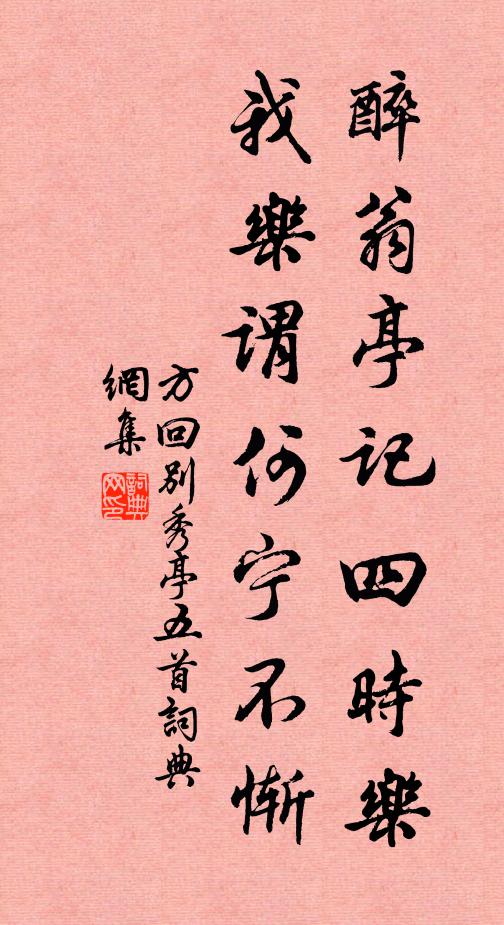 醉翁亭記四時樂
我樂謂何宁不慚
方回別秀亭五首詞典
網集
詞典网印